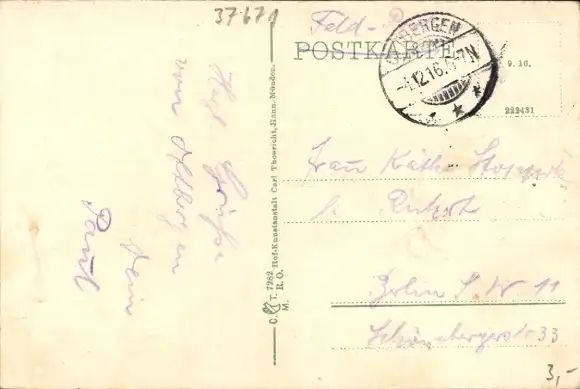 37671
Feld-
POSTKARTE
BERGEN
-4.12.16. 6-7N
9.16.
222431
Herzl. Grüße
vom
Dein
Paul
C. T. 7282 Hof-Kunstanstalt Carl Thoericht, Hann.-Münden.
T. R. O.
M.
Frau Käthe
Berlin S. W 11
Schönebergerstr 33
3,-